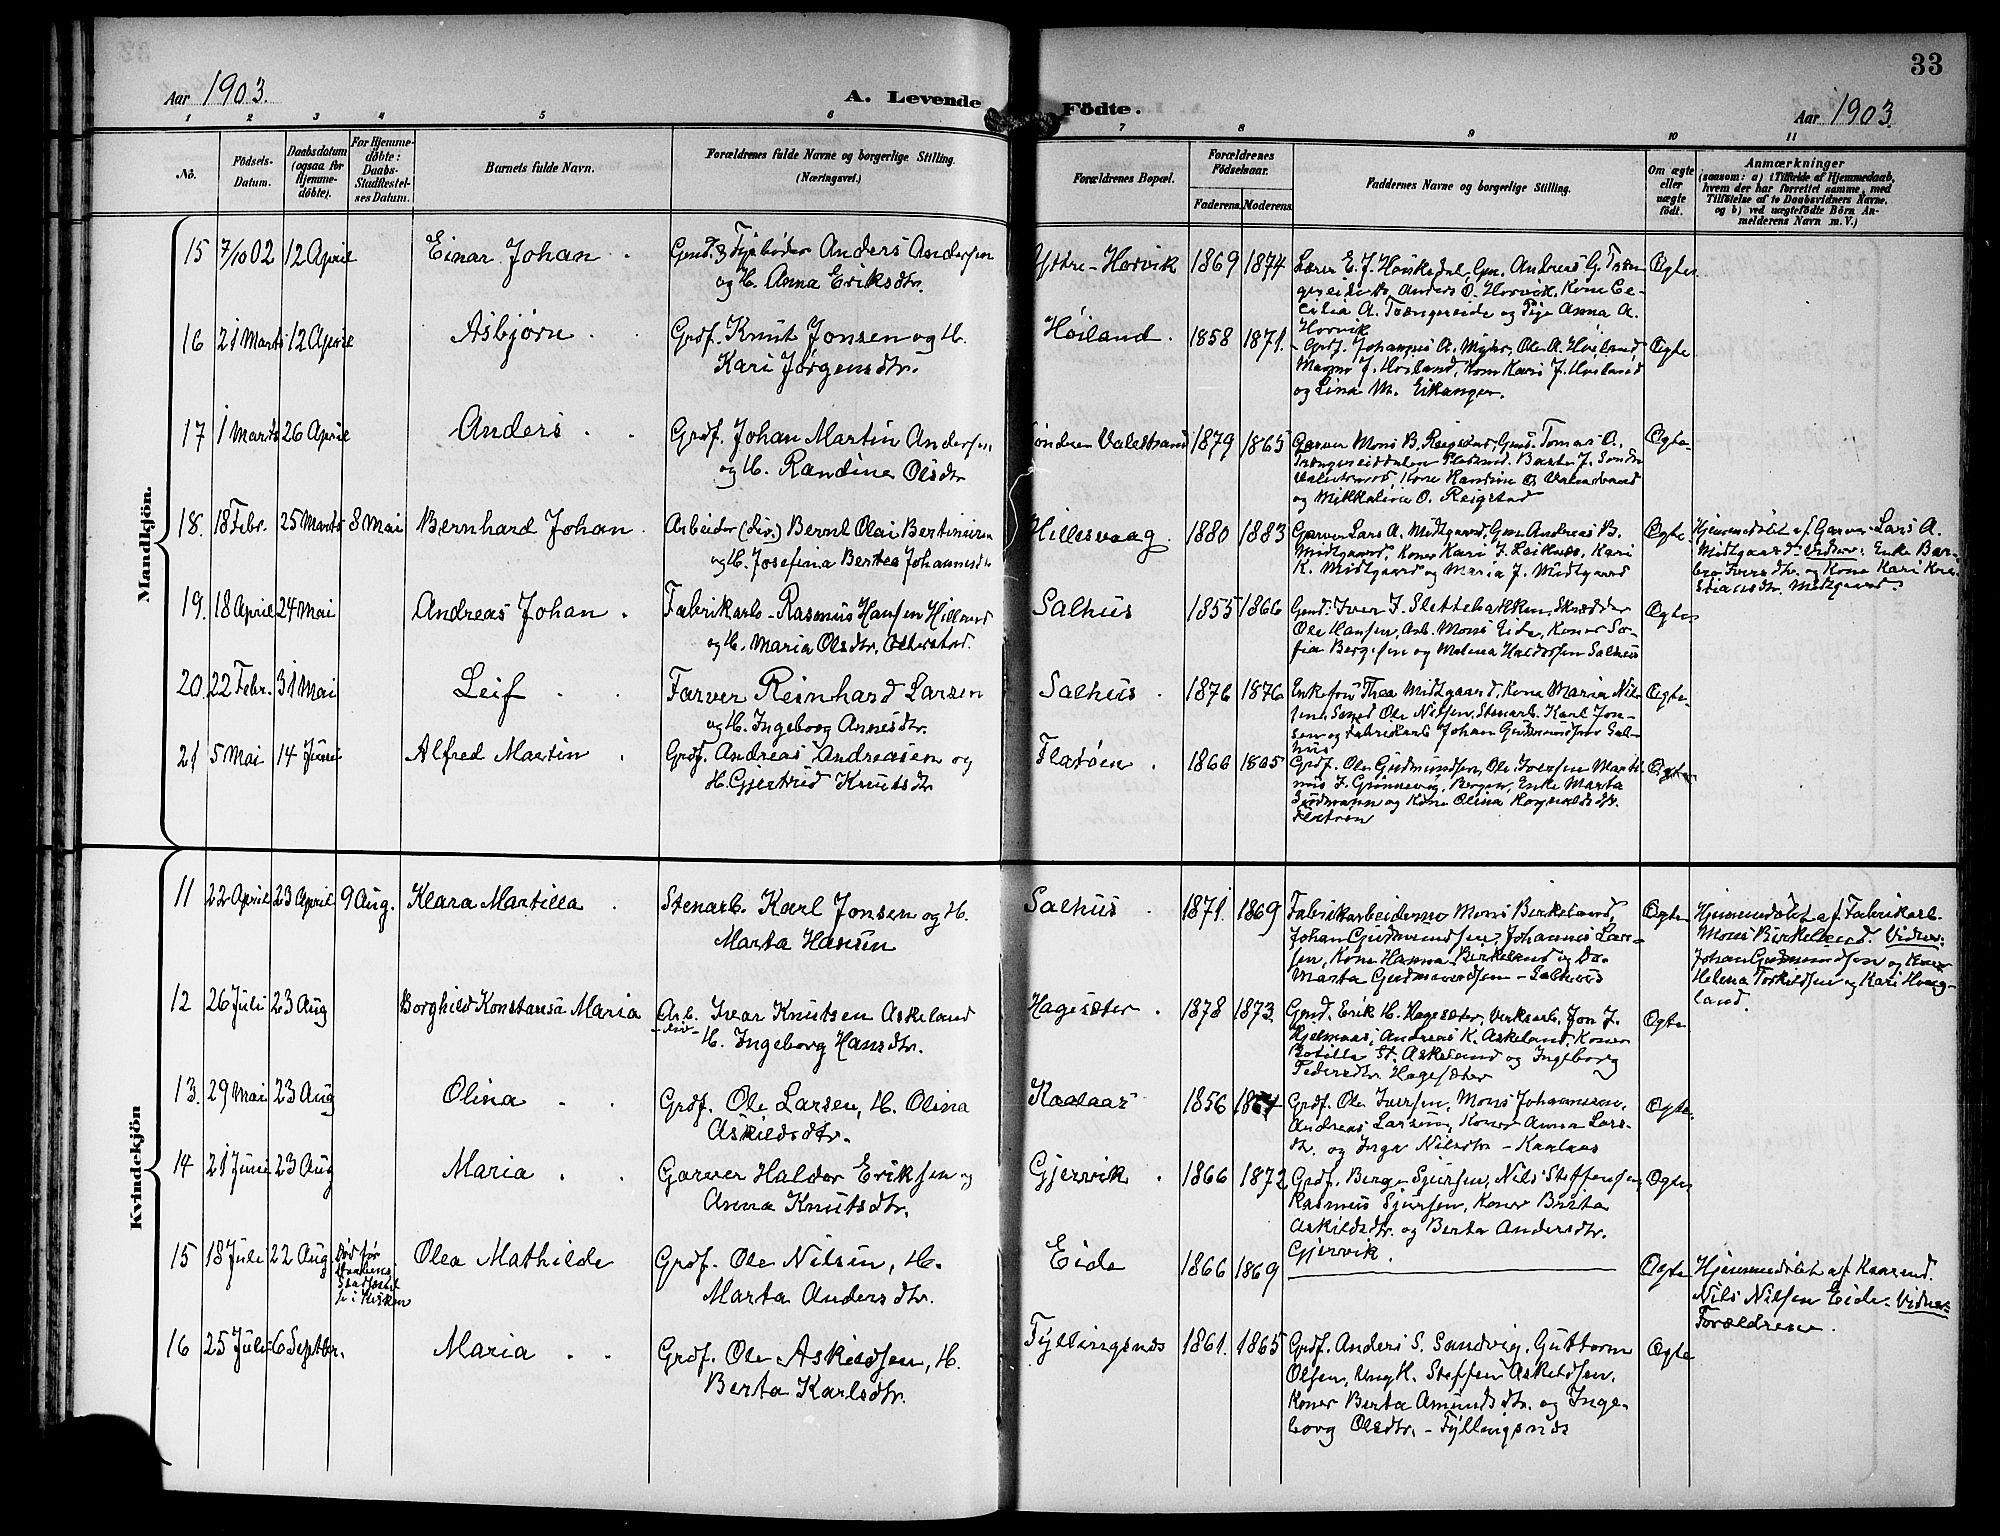 33
Aar 1903.
A. Levende Födte.
Aar 1903.
1 2 3 4 5 6 7 8 9 10 11
No.
Födsels-Datum.
Daabsdatum (ogsaa for Hjemmedøbte).
For Hjemmedøbte: Daabs-Stadfestelses Datum.
Barnets fulde Navn.
Forældrenes fulde Navne og borgerlige Stilling. (Næringsvei.)
Forældrenes Bopæl.
Forældrenes Födselsaar.
Faderens. Moderens.
Faddernes Navne og borgerlige Stilling.
Om ægte eller uægte født.
Anmærkninger
(saasom: a) i Tilfælde af Hjemmedaab,
hvem der har forrettet samme, med
Tilføielse af to Daabsvidners Navne,
og b) ved uægtefødte Börn Anmelderens Navn m. V.)
Mandkjön.
15 7/10 02 12 April Einar Johan Anders Andersen
og H. Anna Eriksdtr.
Ytre-Horvik 1869 1874 Lærer E. J. Anders O. Horvik, Kone Cecilia A. og Pige Anna A. Horvik Ægte
16 21 Marts 12 April Asbjørn Grdf. Knut Jonsen og H.
Kari Jørgensdtr.
Høiland. 1858 1871. Grdf. Johannes A. Myhr, Ole A. Høiland,
Magne J. Høiland, Kone Kari J. Høiland
og Lina M. Eikanger. Ægte
17 1 Marts 26 April Anders Grdf. Johan Martin Andersen
og H. Randine Olsdtr
Søndre Valestrand 1879 1865 Garver Mons B. Reigstad,
og Mikkaline O. Reigstad Ægte
18. 18 Febr. 25 Marts 8 Mai Bernhard Johan Arbeider (Liv.) Bernt Olai Bertinius
og H. Josefina Bertea Johannesdtr
Hillesvaag. 1880 1883 Garver Lars A. Midtgaard, Gm. Andreas B.
Midtgaard, Koner Kari J. Leiknes, Kari
K. Midtgaard og Maria J. Midtgaard Ægte Hjemmedøbt af Garver Lars A.
Midtgaard. Vidner: Enke Barbro Iversdtr. og Kone Kari Kristiansdtr. Midtgaard.
19. 18 April 24 Mai Andreas Johan Fabrikarb. Rasmus Hansen
og H. Maria Olsdtr.
Salhus 1855 1866 Gmd. Iver J. Slettebakken, Skrædder
Ole Hansen, Arb. Mons Eide, Koner Sofia Bergesen og Malena Haldorsen Salhus Ægte
20. 22 Febr. 31 Mai Leif Farver Reinhard Larsen
og H. Ingeborg Annesdtr.
Salhus 1876 1876 Enkefru Thea Midtgaard, Kone Maria Nilsen, Smed Ole Nilsen, Stenarb. Karl Jonsen og Fabrikarb. Johan Gudmundsen Salhus Ægte
21 5 Mai 14 Juni Alfred Martin Grdf. Andreas Andreassen og
H. Gjertrud Knutsdtr
Flatøen 1866 Grdf. Ole Gudmundsen, Ole Iversen, Bergen, Enke Marta
og Kone Olina
Flatøen Ægte
Kvindekjön
11 22 April 23 April 9 Aug. Klara Martilla Stenarb. Karl Jonsen og H.
Marta Hansen
Salhus 1871. 1869 Fabrikarbeiderne Mons Birkeland,
Johan Gudmundsen, Johannes Larsen, Kone Hanna Birkeland og Do.
Marta Gudmundsen - Salhus Ægte Hjemmedøbt af Fabrikarb.
Mons Birkeland. Vidner:
Johan Gudmundsen og Kone
Helena Torkildsen og Kari
12 26 Juli 23 Aug Borghild Konstansa Maria Arb. Ivar Knutsen Askeland
H. Ingeborg Hansdtr.
Hagesæter 1878 1873. Gmd. Erik H. Hagesæter, Verksarb. Jon J.
Hjelmaas, Andreas K. Askeland, Koner
Botilla St. Askeland og Ingeborg
Pedersdtr Hagesæter Ægte
13. 29 Mai 23 Aug Olina Grdf. Ole Larsen, H. Olina
Askildsdtr.
Kaalaas 1856 Grdf. Ole Iversen, Mons Johannesen,
Andreas Larsen, Koner Anna Larsdtr. og Inga Nilsdtr - Kaalaas Ægte
14 21 Juni 23 Aug Maria Garver Haldor Eriksen og
Anna Knutsdtr.
Gjervik 1866 1872 Grdf. Berge Sjursen, Nils Steffensen,
Rasmus Sjursen, Koner Brita
Askildsdtr. og Berta Andersdtr.
Gjervik. Ægte
15 18 Juli 22 Aug. Død før Daabens Stadfæstelse i Kirken Olea Mathilde Grdf. Ole Nilsen, H.
Marta Andersdtr.
Eide 1866 1869 Ægte Hjemmedøbt af
Nils Nilsen Eide. Vidner
Forældrene.
16 25 Juli 6 Septbr. Maria Grdf. Ole Askildsen, H.
Berta Karlsdtr.
Fyllingsnes 1861. 1865 Grdf. Anders S. Sandvig, Guttorm
Olsen, Ungk. Steffen Askildsen,
Koner Berta Amundsdtr. og Ingeborg Olsdtr. - Fyllingsnes Ægte